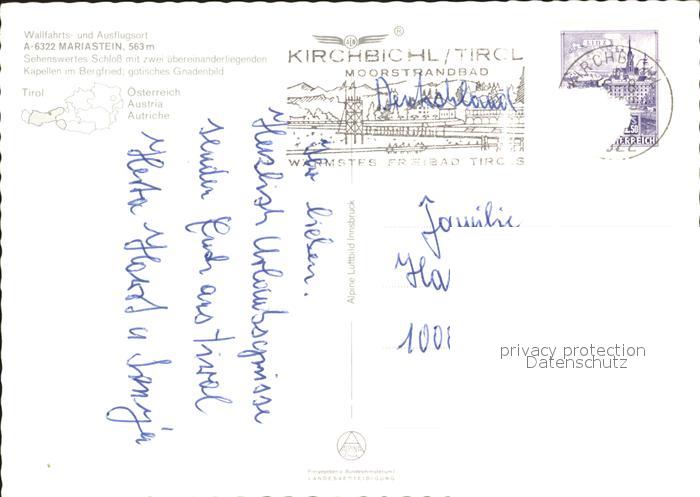 Wallfahrts- und Ausflugsort
A-6322 MARIASTEIN, 563 m
Sehenswertes Schloß mit zwei übereinanderliegenden
Kapellen im Bergfried; gotisches Gnadenbild
Tirol
Österreich
Austria
Autriche
®
KIRCHBICHL/TIROL
MOORSTRANDBAD
WÄRMSTES FREIBAD TIROLS
Deutschland
KIRCHBI
LINZ
Ihr lieben.
Herzlich Urlaubsgrüsse
senden Euch aus Tirol
Herta Horst u Sonja
Alpine Luftbild Innsbruck
Familie
Ha
100
privacy protection
Datenschutz
ALPINE
Freigegeben v. Bundesministerium f.
LANDESVERTEIDIGUNG